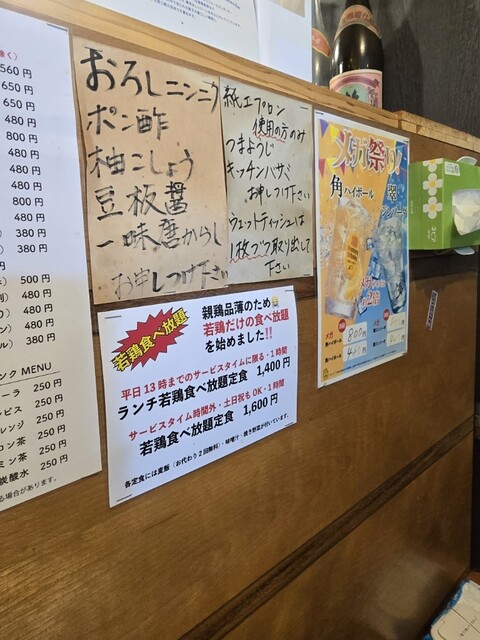 除く)
560円
650円
650円
480円
800円
480円
480円
480円
480円
380円
380円
500円
480円
480円
480円
380円
ンク MENU
ーラ 250円
ルピス 250円
レンジ 250円
コン茶 250円
ミン茶 250円
炭酸水 250円
る場合があります。
おろしニンニク
ポン酢
柚こしょう
豆板醤
一味唐からし
お申しつけ下さい
紙エプロン
使用の方のみ
つまようじ
キッチンハサミ
お申しつけ下さい
ウェットティッシュは
1枚づつ取り出して
下さい
若鶏食べ放題
親鶏品薄のため
若鶏だけの食べ放題
を始めました!!
平日13時までのサービスタイムに限る・1時間
ランチ若鶏食べ放題定食 1,400円
サービスタイム時間外・土日祝もOK・1時間
若鶏食べ放題定食 1,600円
各定食には麦飯(お代わり2回無料)・味噌汁・焼き野菜が付いています。
メガ祭り!
角ハイボール
メガ
角ハイボール
800円
400円